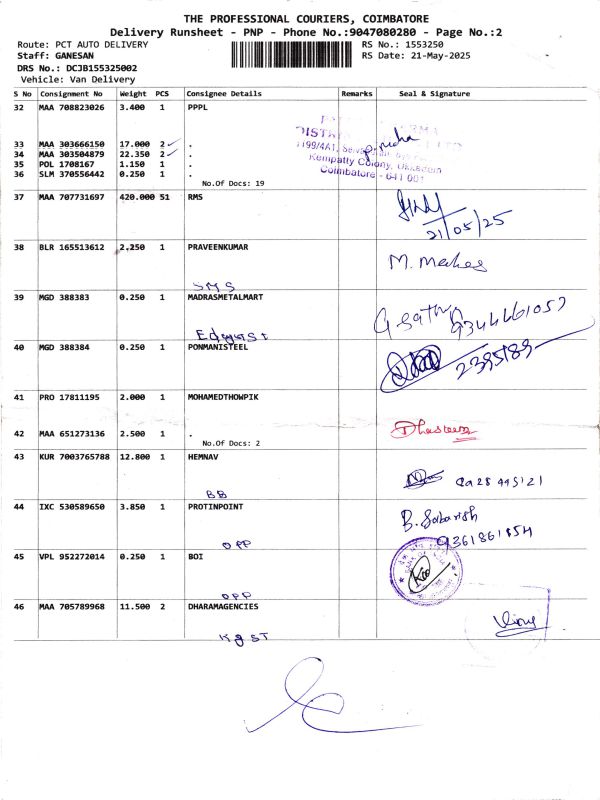 THE PROFESSIONAL COURIERS, COIMBATORE
Delivery Runsheet - PNP - Phone No.:9047080280 - Page No.:2
Route: PCT AUTO DELIVERY RS No.: 1553250
Staff: GANESAN RS Date: 21-May-2025
DRS No.: DCJB155325002
Vehicle: Van Delivery
S No Consignment No Weight PCS Consignee Details Remarks Seal & Signature
32 MAA 708823026 3.400 1 PPPL
33 MAA 303666150 17.000 2 .
34 MAA 303504879 22.350 2 .
35 POL 1708167 1.150 1 .
36 SLM 370556442 0.250 1 .
Kempatty Colony,
Coimbatore - 641 001
No.Of Docs: 19
37 MAA 707731697 420.000 51 RMS
21/05/25
38 BLR 165513612 2.250 1 PRAVEENKUMAR
M. Mahes
SMS
39 MGD 388383 0.250 1 MADRASMETALMART
9344461057
40 MGD 388384 0.250 1 PONMANISTEEL
2395189
41 PRO 17811195 2.000 1 MOHAMEDTHOWPIK
42 MAA 651273136 2.500 1 .
No.Of Docs: 2
43 KUR 7003765788 12.800 1 HEMNAV
BB
44 IXC 530589650 3.850 1 PROTINPOINT
B. Sabarish
OPP
45 VPL 952272014 0.250 1 BOI
OPP
46 MAA 705789968 11.500 2 DHARAMAGENCIES
KGST